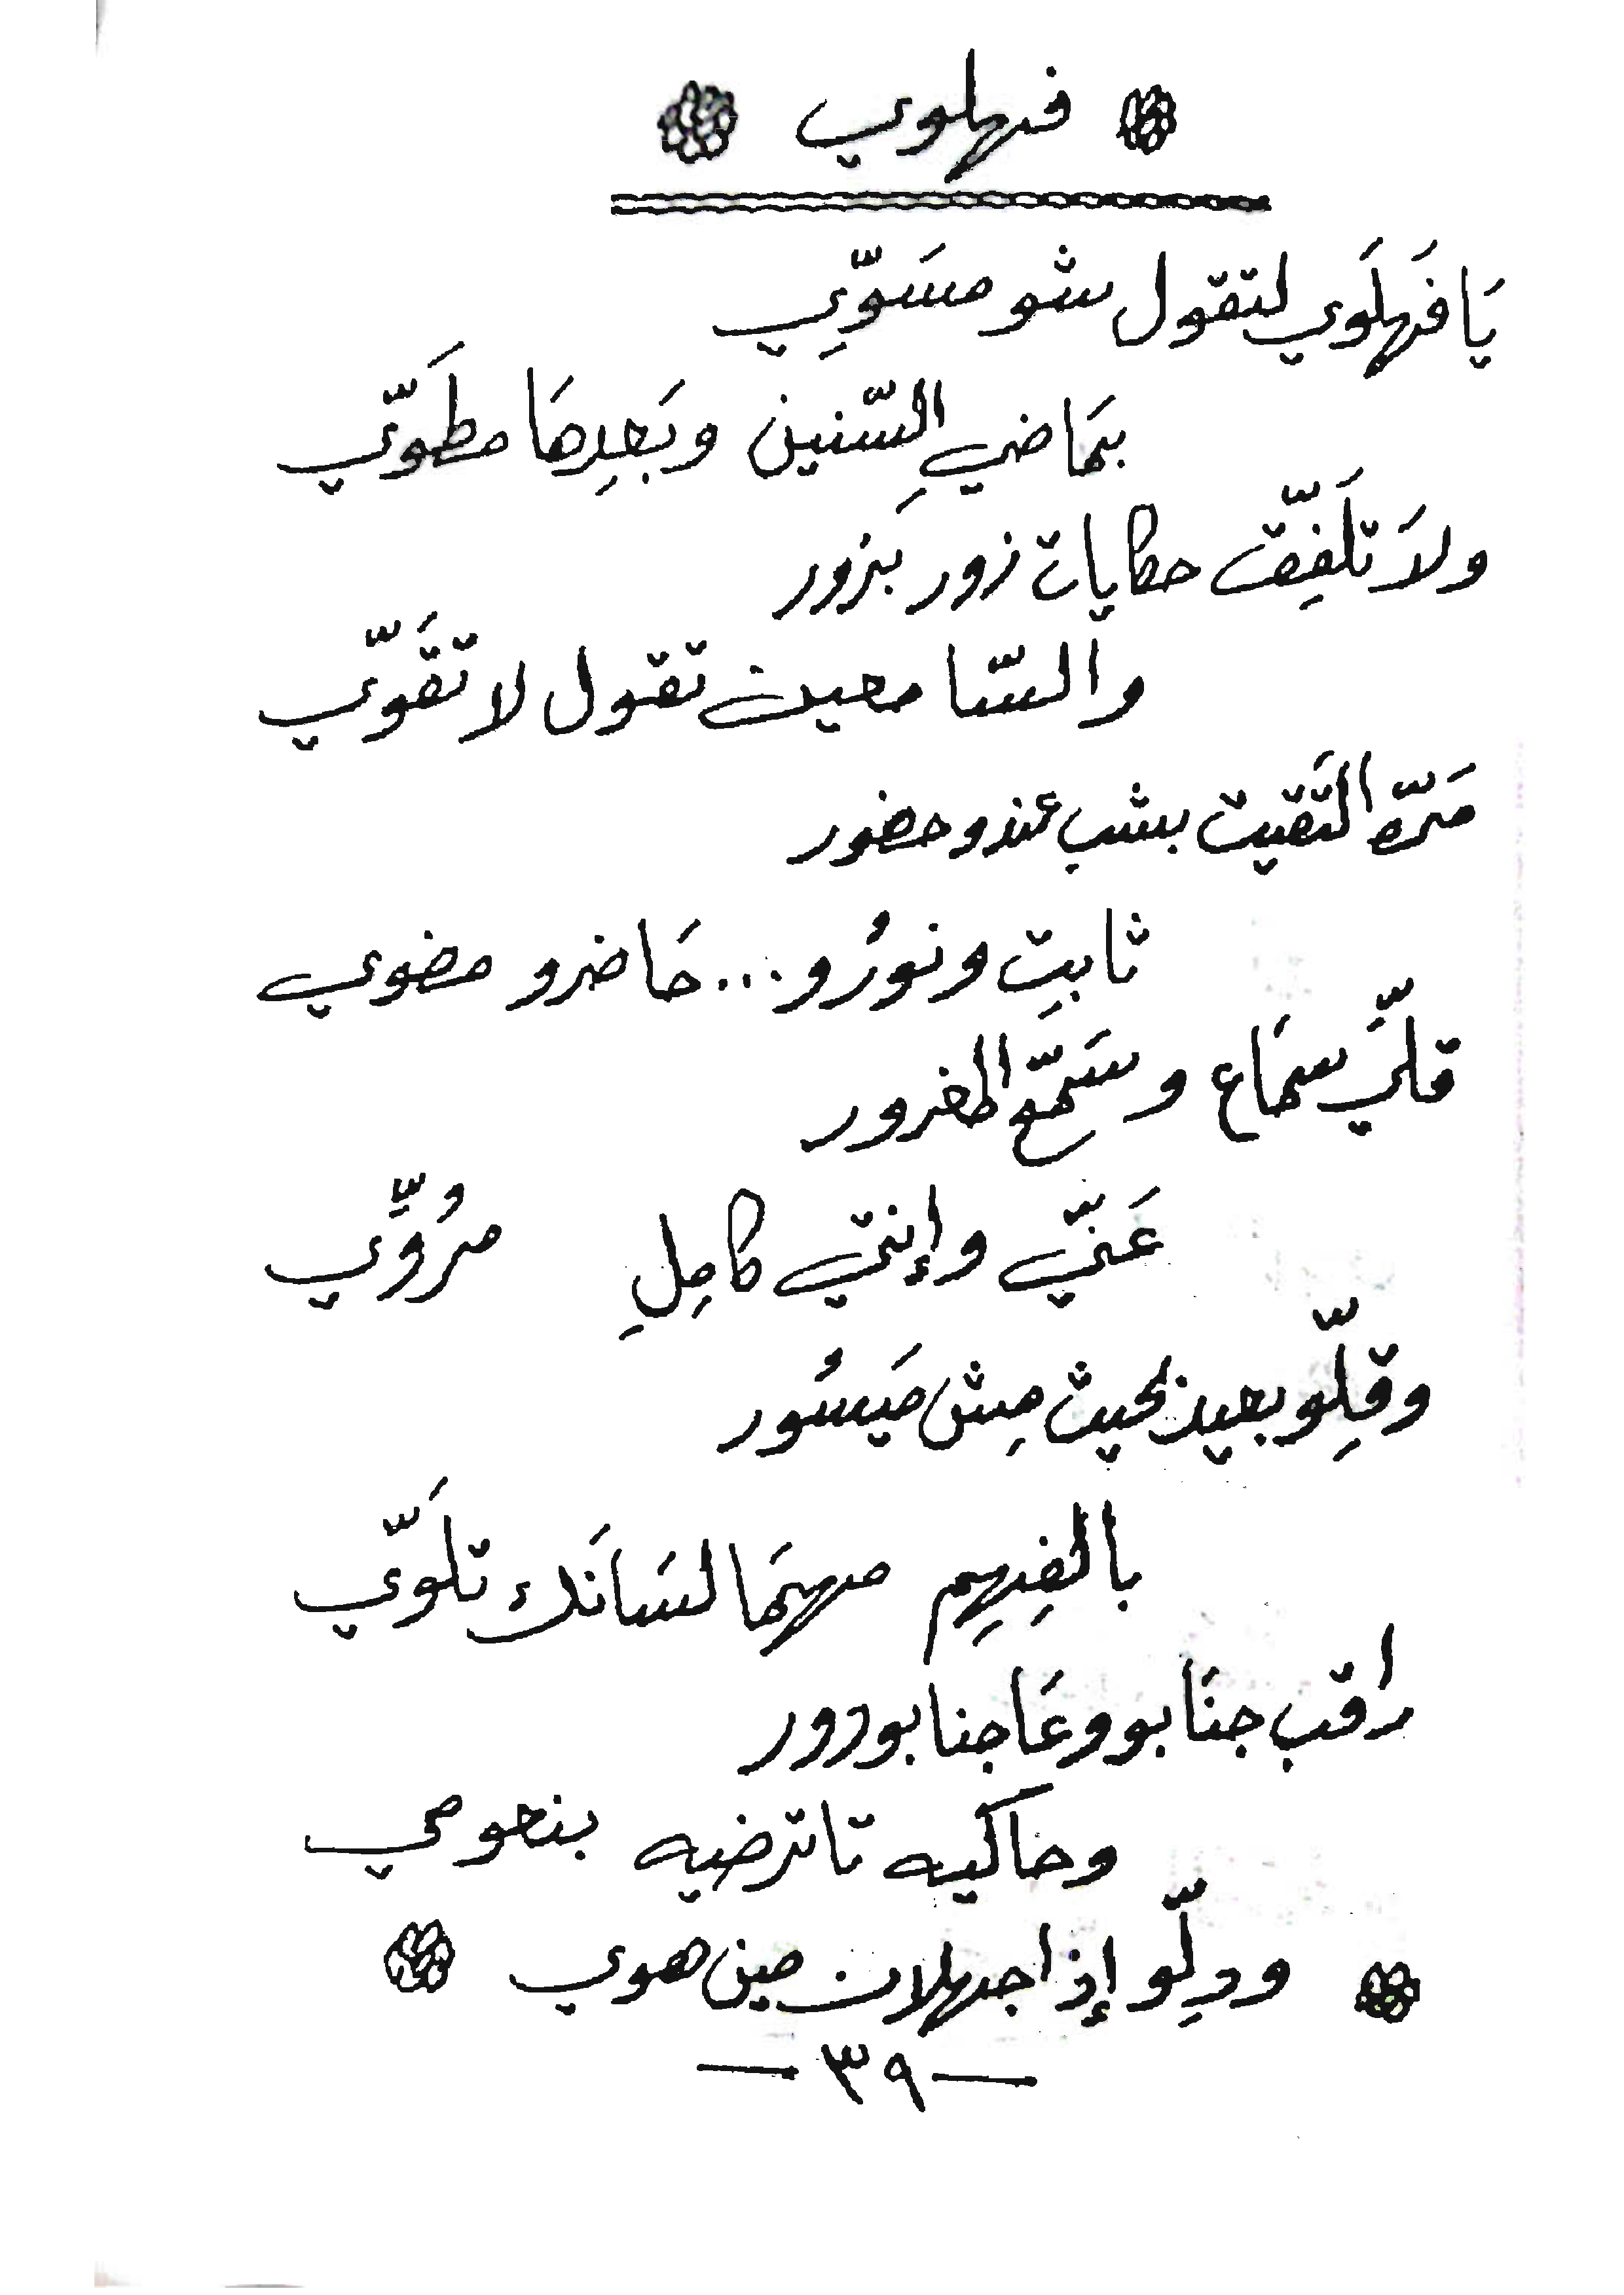 فهلوي
يَا فَهلَوي لتقول شو مسَوِّي
بمَاضيِ السّنين وبَعدِهَا مطَوّي
ولاَ تلَفِّق حكايات زور بزور
والسّامعين تقول لا تقَوّي
مَرّه التَقيت بشب عندو حضور
ثابتِ ونورُو... حَاضرو مضوي
قلّي سمَاع وسَمّع المغرور
عَنّي وإنتي كامِلِ مرُوّي
وقلِّو بعيد بحيث مِش مَيسُور
بالفِهِم مهمَا لسَانَك تلَوّي
راقب جنَابو وعَا جنابو دور
وحاكيه تا ترضيه بنحوي
ودلِّو إذا جهلان مين هوي
— ٣٩ —